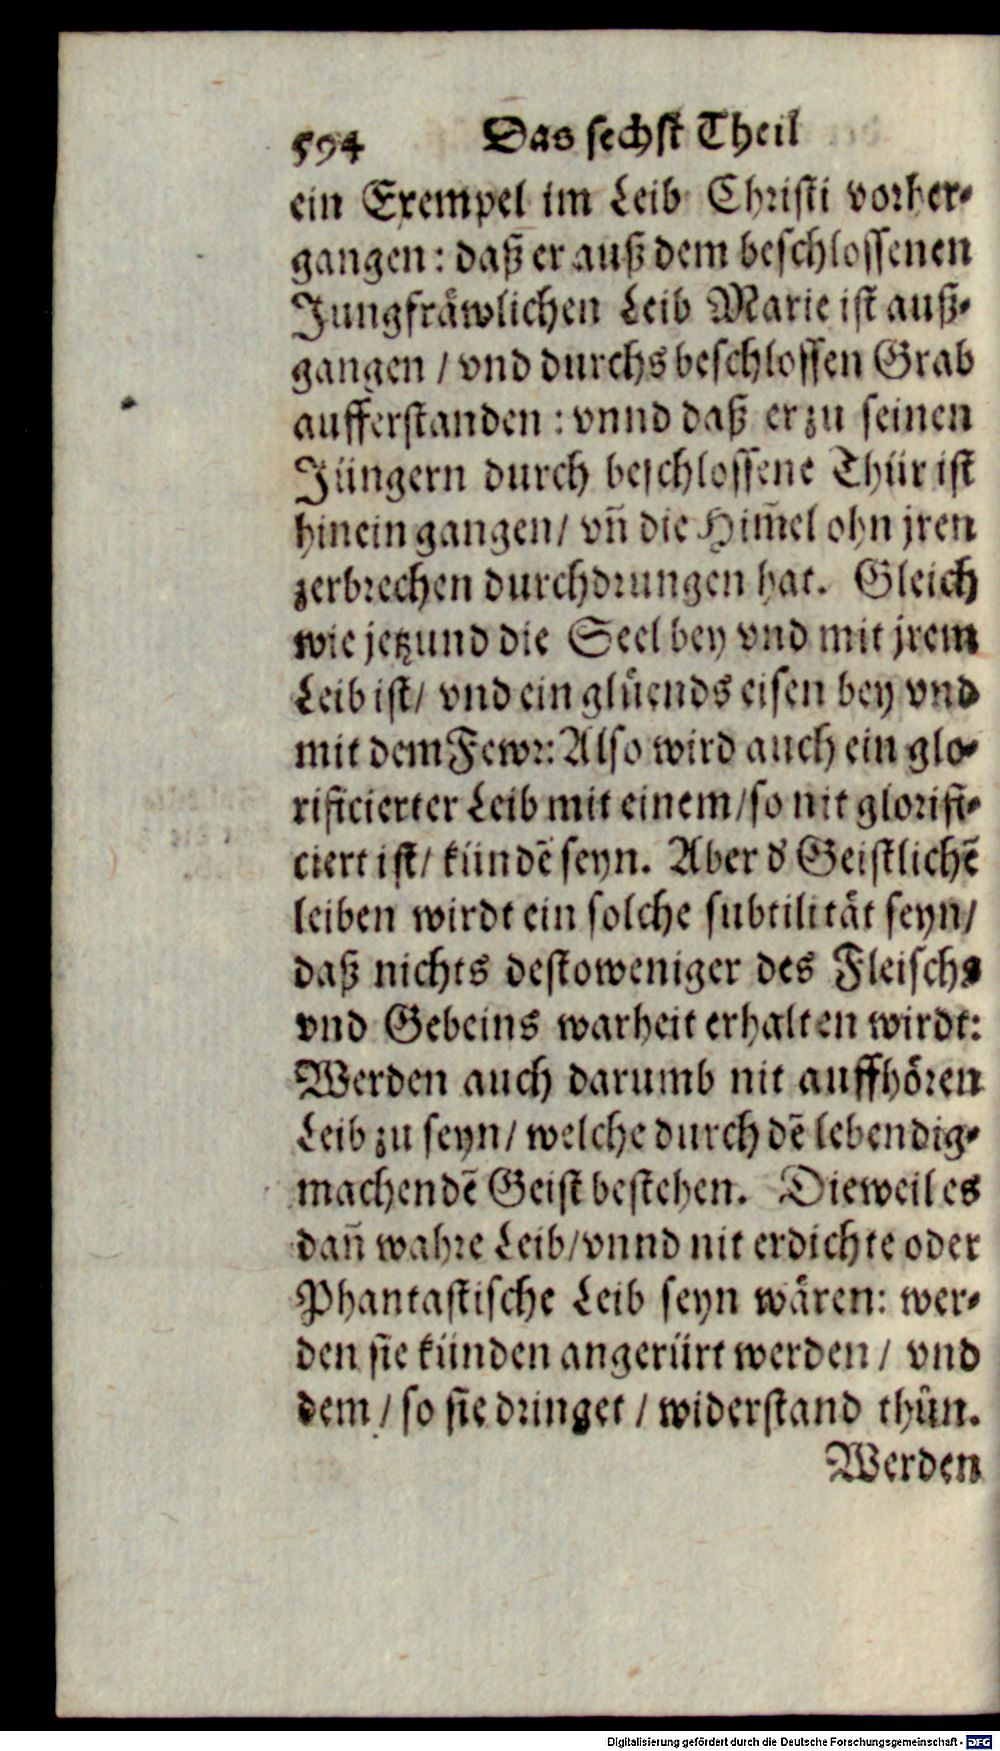 594 Das sechst Theil
ein Exempel im Leib Christi vorher⸗
gangen: daß er auß dem beschlossenen
Jungfräwlichen Leib Marie ist auß⸗
gangen / vnd durchs beschlossen Grab
aufferstanden: vnnd daß er zu seinen
Jüngern durch beschlossene Thür ist
hinein gangen / vn̄ die Him̄el ohn jren
zerbrechen durchdrungen hat. Gleich
wie jetzund die Seel bey vnd mit jrem
Leib ist / vnd ein glüends eisen bey vnd
mit dem Fewr: Also wird auch ein glo⸗
rificierter Leib mit einem / so nit glorifi⸗
ciert ist / künde͂ seyn. Aber d' Geistliche͂
leiben wirdt ein solche subtilität seyn /
daß nichts destoweniger des Fleischs
vnd Gebeins warheit erhalten wirdt:
Werden auch darumb nit auffhören
Leib zu seyn / welche durch de͂ lebendig⸗
machende͂ Geist bestehen. Dieweil es
dan̄ wahre Leib / vnnd nit erdichte oder
Phantastische Leib seyn wären: wer⸗
den sie künden angerürt werden / vnd
dem / so sie dringet / widerstand thůn.
Werden
Digitalisierung gefördert durch die Deutsche Forschungsgemeinschaft - DFG